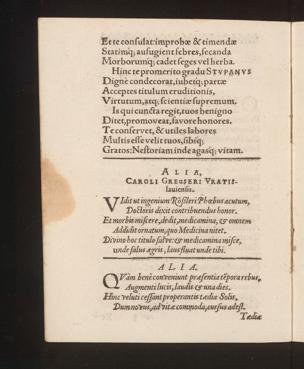 Et te consulat: improbæ & timendæ
Statimq; aufugient febres, secanda
Morborumq; cadet seges vel herba.
Hinc te promerito gradu STVPANVS
Dignè condecorat, iubesq; partæ
Acceptes titulum eruditionis,
Virtutum, atq; scientiæ supremum.
Is qui cuncta regit, tuos benigno
Ditet, promoveat, favore honores.
Te conservet, & utiles labores
Multis esse velit tuos, sibiq;
Gratos: Nestoriam inde agasq; vitam.
ALIA,
CAROLI GREUSERI VRATIS-
laviensis.
VIdit ut ingenium Rösleri Phœbus acutum,
Doctoris dixit contribuendus honor.
Et morbis miscere, dedit, medicamina, & omnem
Addidit ornatum, quo Medicina nitet.
Divino hoc titulo salve: & medicamina misce,
unde salus ægris, laus fluat unde tibi.
ALIA.
QVàm benè conveniunt præsentia tẽpora rebus,
Augmenti lucis, laudis & una dies.
Hinc veluti cessant properantis tædia Solis,
Dum novus, ad vitæ commoda, cursus adest.
Tædia